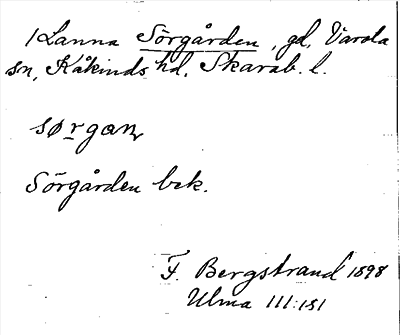 /Lanna Sörgården, gd, Varola
sn, Kåkinds hd, Skarab. l.
sørgan
Sörgården bek.
F. Bergstrand 1898
Ulma III:181